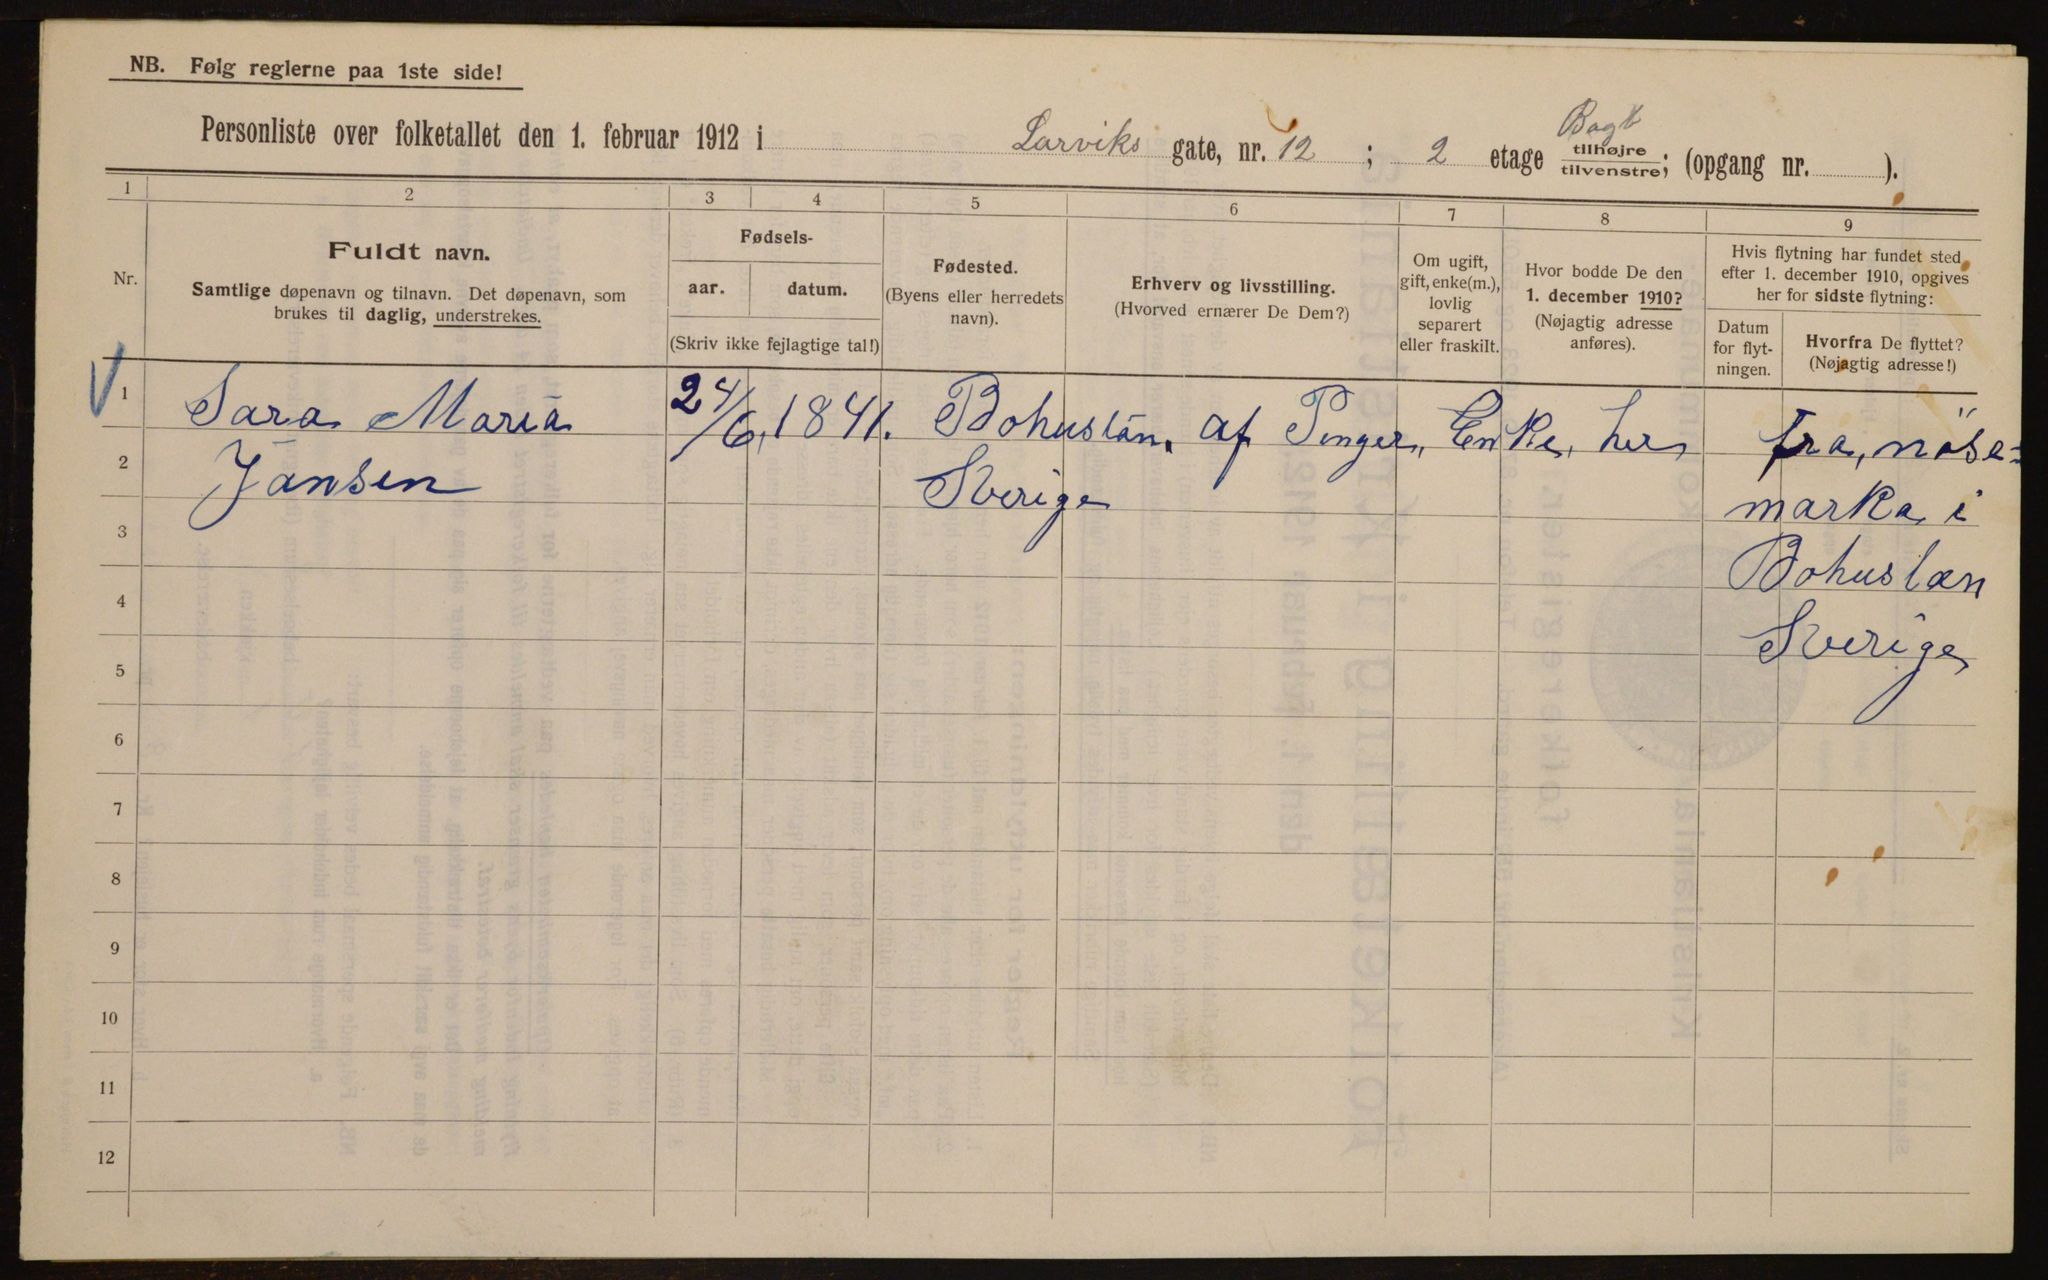 NB. Følg reglerne paa 1ste side!
Personliste over folketallet den 1. februar 1912 i Larviks gate, nr. 12 ; 2 etage Bagb tilhøjre tilvenstre; (opgang nr. ).
1 2 3 4 5 6 7 8 9
Nr.
Fuldt navn.
Samtlige døpenavn og tilnavn. Det døpenavn, som
brukes til daglig, understrekes.
Fødsels-
aar. datum.
(Skriv ikke fejlagtige tal!)
Fødested.
(Byens eller herredets
navn).
Erhverv og livsstilling.
(Hvorved ernærer De Dem?)
Om ugift,
gift, enke(m.),
lovlig
separert
eller fraskilt.
Hvor bodde De den
1. december 1910?
(Nøjagtig adresse
anføres).
Hvis flytning har fundet sted
efter 1. december 1910, opgives
her for sidste flytning:
Datum
for flyt-
ningen.
Hvorfra De flyttet?
(Nøjagtig adresse!)
1 Sara Maria 24/6, 1841. Bohuslän, af Penger, Enke, her, fra, nöse=
2 Jansen Sverige
marka i
3
Bohuslæn
4
Sverige
5
6
7
8
9
10
11
12